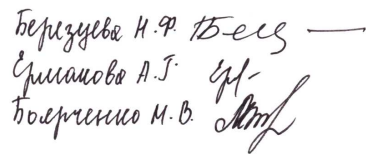 Березуева Н.Ф.
Ермакова А.Г.
Боярченко М.В.